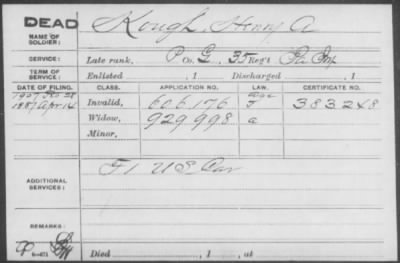 DEAD
NAME OF SOLDIER:
Kough, Henry A
SERVICE:
Late rank, P Co. G, 35 Reg't Pa Inf
TERM OF SERVICE:
Enlisted , 1 Discharged , 1
DATE OF FILING. CLASS. APPLICATION NO. LAW. CERTIFICATE NO.
1907
1887 Apr 14 Invalid, 606,176 J 383248
Widow, 929998 a
Minor,
ADDITIONAL SERVICES:
F1 US
REMARKS:
Died , 1 , at